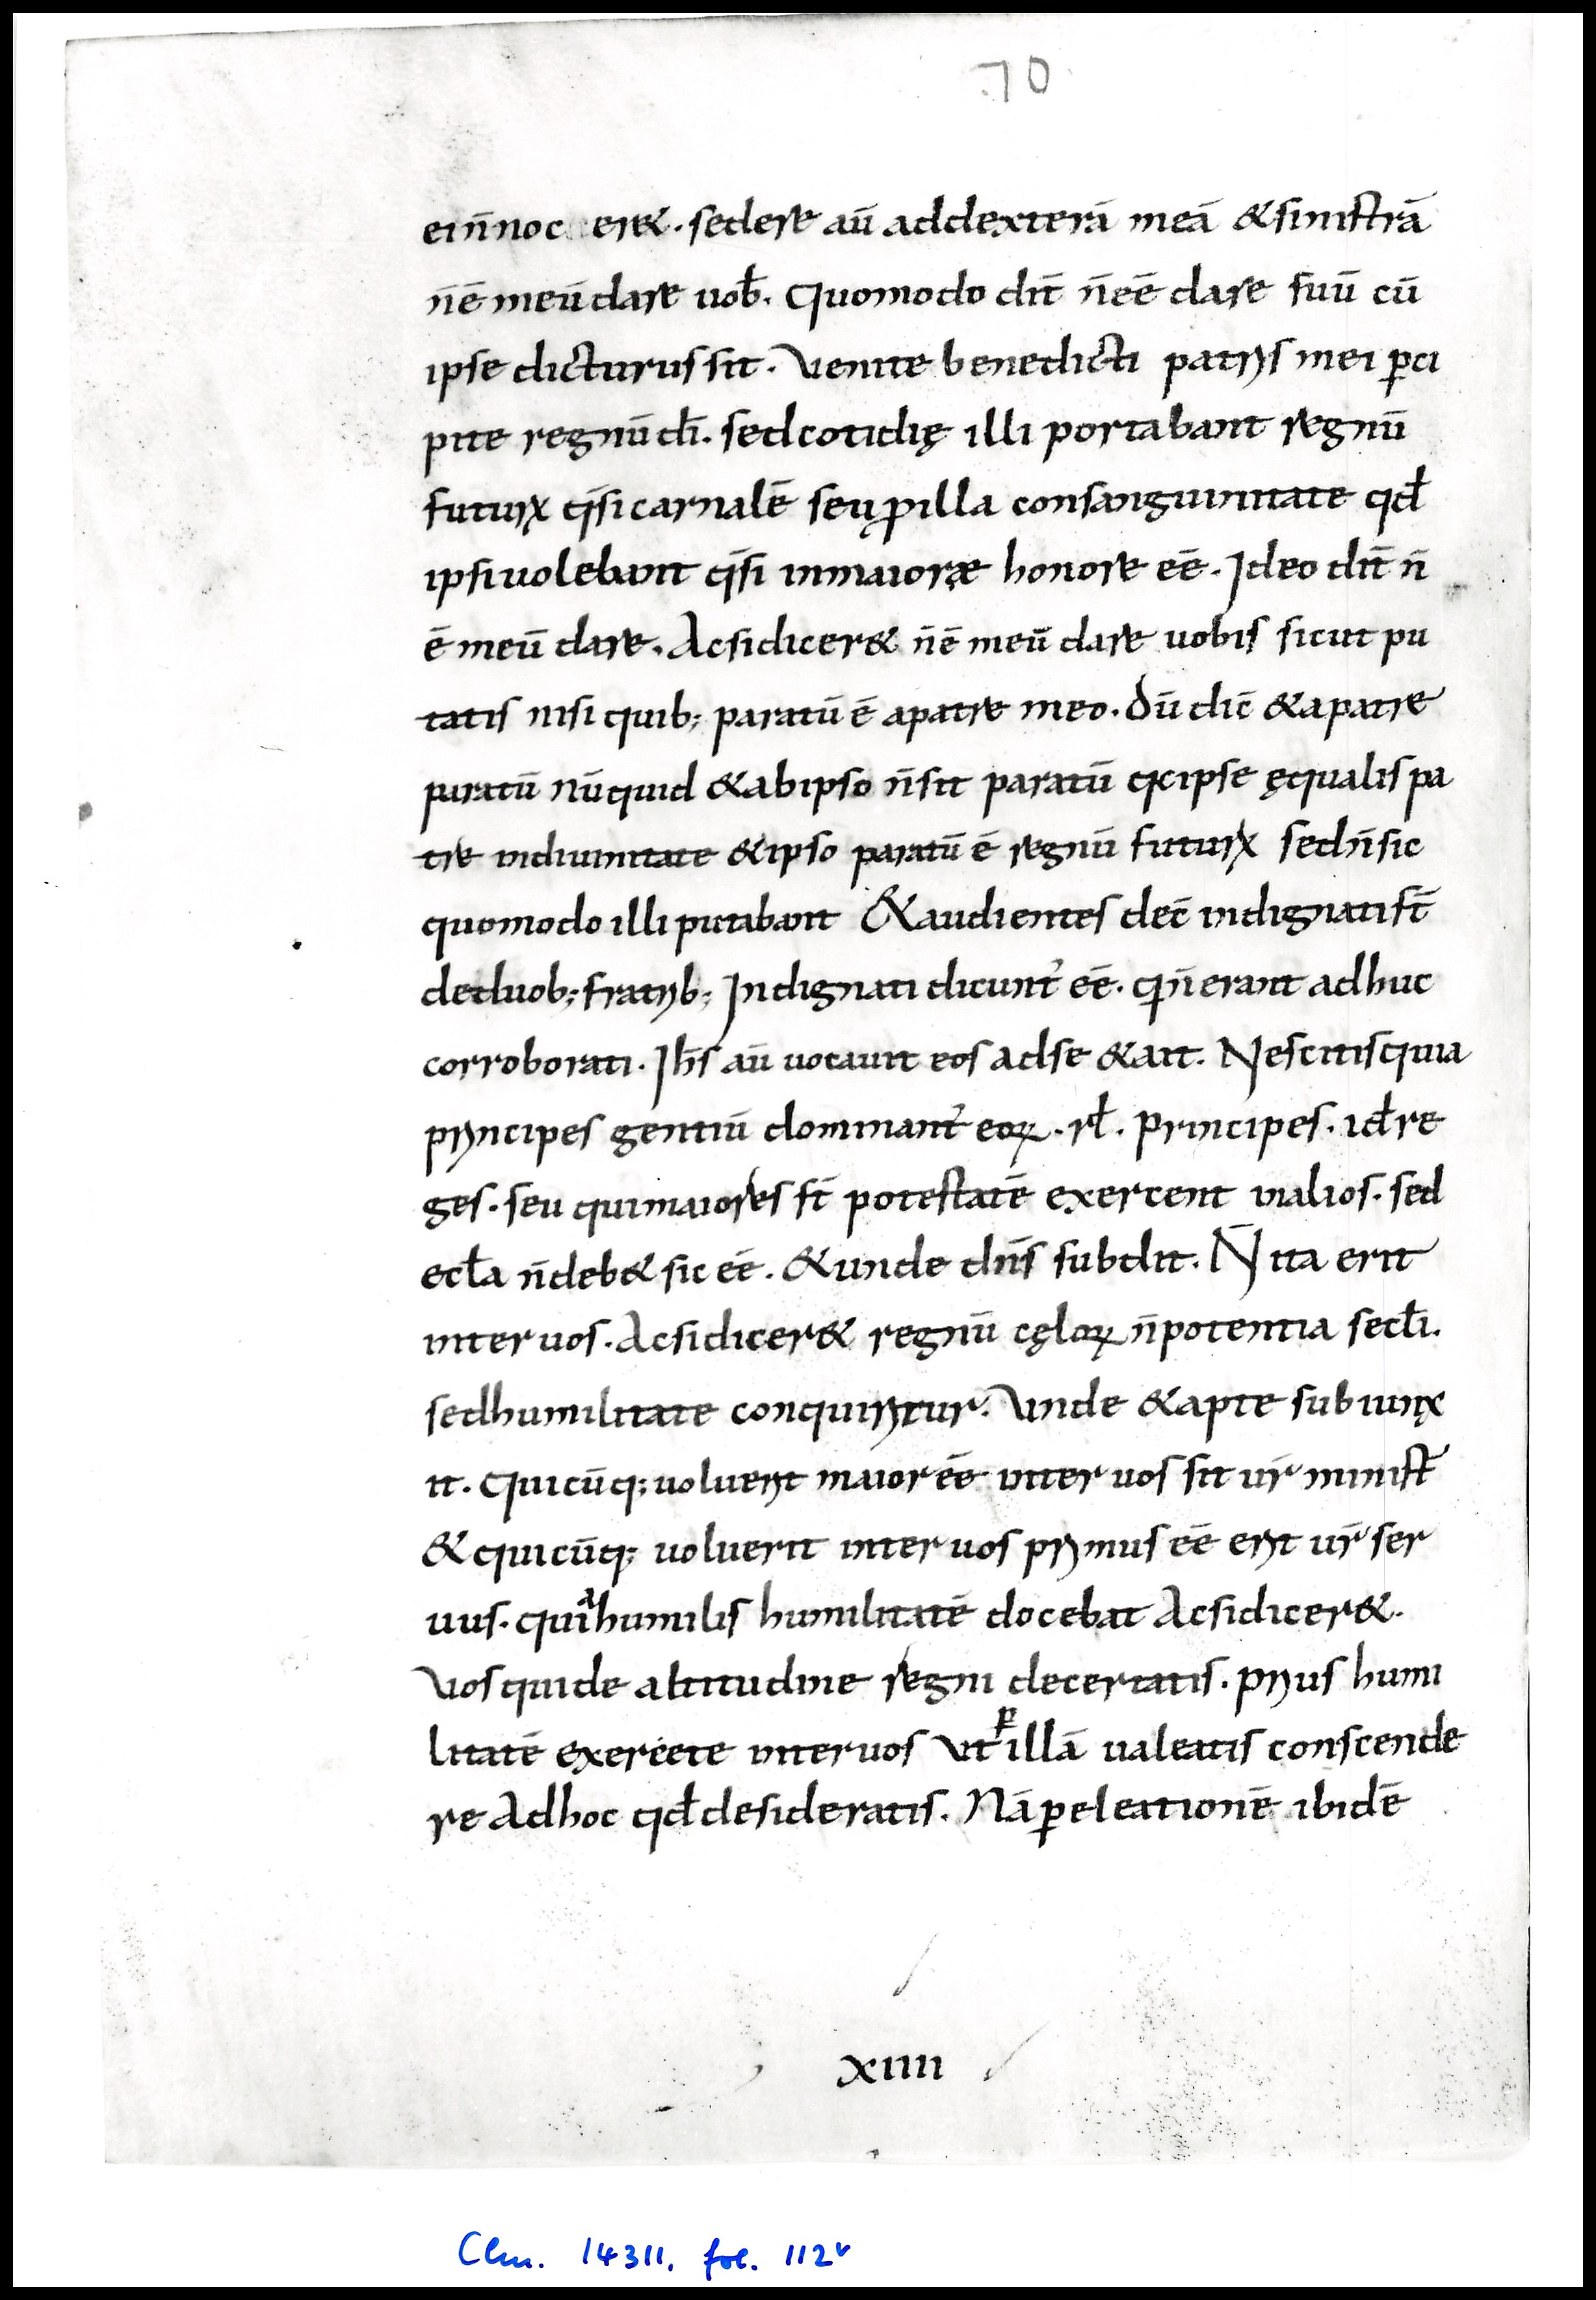 70
ei n̄ noc er&. sedere aū addexterā meā &sinistrā
n̄ ē meū dare uob̄. Quomodo dīt n̄ eē dare suū cū
ipse dicturus sit. Venite benedicti patris mei ꝑci
pite regnū dī. sed cotidię illi portabant regnū
futurꝝ q̄si carnalē seu ꝑ illa consanguinitate qd̄
ipsi uolebant q̄si in maioræ honore eē. Ideo dīt n̄
ē meū dare. Acsidicer& n̄ ē meū dare uobis sicut pu
tatis nisi quib; paratū ē apatre meo. dū dic̄ &apatre
paratū nūquid &abipso n̄ sit paratū q ipse ęqualis pa
tre indiuinitate &ipso paratū ē regnū futurꝝ sed n̄ sic
quomodo illi putabant &audientes dec̄ indignati st̄
deduob; fratrib; Indignati dicunt᷑ eē. q n̄ erant adhuc
corroborati. Ih̄s aū uocauit eos adse &ait. Nescitisquia
principes gentiū dominant᷑ eoꝝ. rl̄. Principes. id̄ re
ges. seu quimaiores st̄ potestatē exercent inalios. sed
ecl̄a n̄ deb& sic eē. &unde dn̄s subdit. N̄ ita erit
inter uos. Acsidicer& regnū cęloꝝ n̄ potentia secl̄i.
sedhumilitate conquiritur. Vnde &apte subiunx
it. Quicūq; uoluerit maior eē inter uos sit ur̄ minist̄
&quicūq; uoluerit inter uos primus eē erit ur̄ ser
uus. quia humilis humilitatē docebat Acsidicer&.
Vos quide altitudine regni decertatis. prius humi
litatē exercete inter uos Vt ꝑ illā ualeatis conscende
re Adhoc qd̄ desideratis. Nā ꝑ eleationē ibidē
xiiii
Clm. 14311, fol. 112v